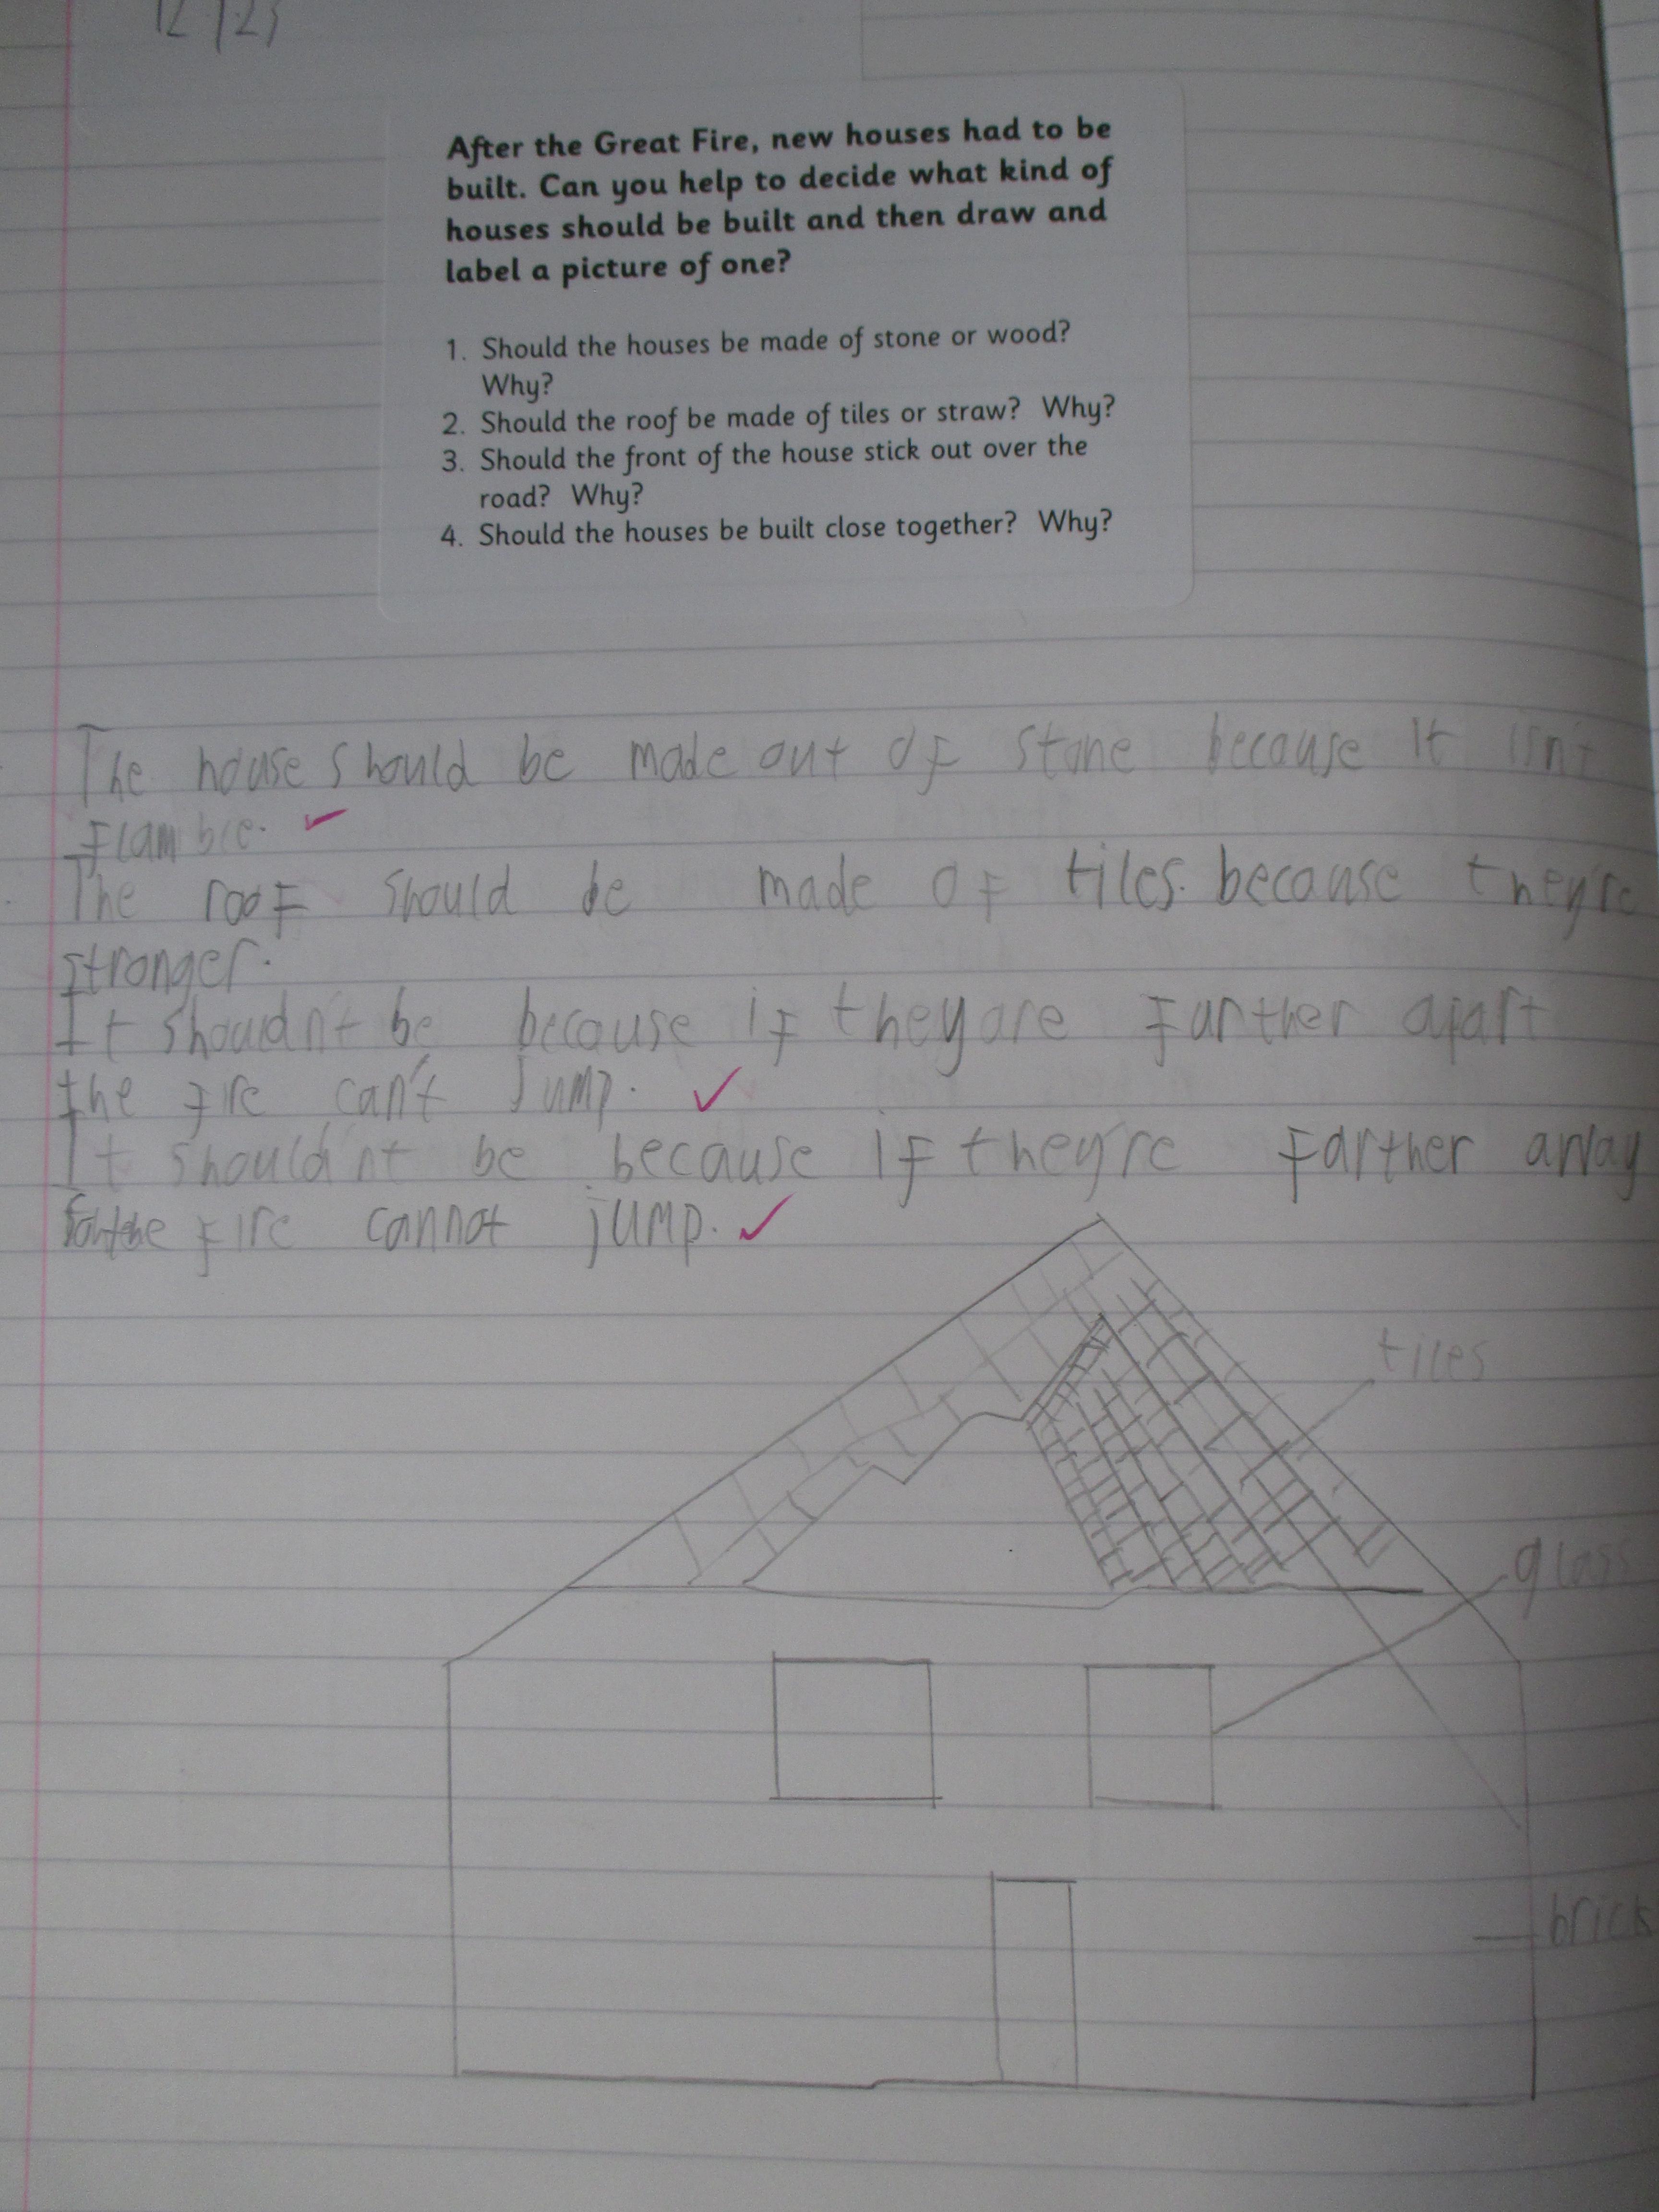 After the Great Fire, new houses had to be
built. Can you help to decide what kind of
houses should be built and then draw and
label a picture of one?
1. Should the houses be made of stone or wood?
Why?
2. Should the roof be made of tiles or straw? Why?
3. Should the front of the house stick out over the
road? Why?
4. Should the houses be built close together? Why?
The house should be made out of stone because it isn't
flamble.
The roof should be made of tiles. because they're
stronger.
It shoudn't be because if they are further apart
the fire can't jump.
It shouldn't be because if they're farther away
fire cannot jump.
tiles
glass
brick